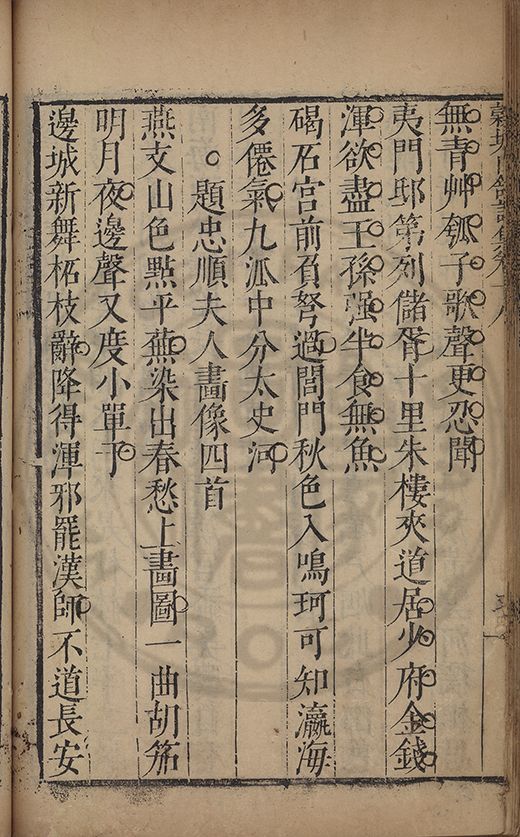 無青艸瓠子歌聲更忍聞
夷門邸第列儲胥十里朱樓夾道居少府金錢
渾欲盡王孫强半食無魚
碣石宮前負弩過閭門秋色入鳴珂可知瀛海
多僊氣九派中分太史河
題忠順夫人畫像四首
燕支山色點平蕪染出春愁上畫圖一曲胡笳
明月夜邊聲又度小單于
邊城新舞柘枝辭降得渾邪罷漢師不道長安